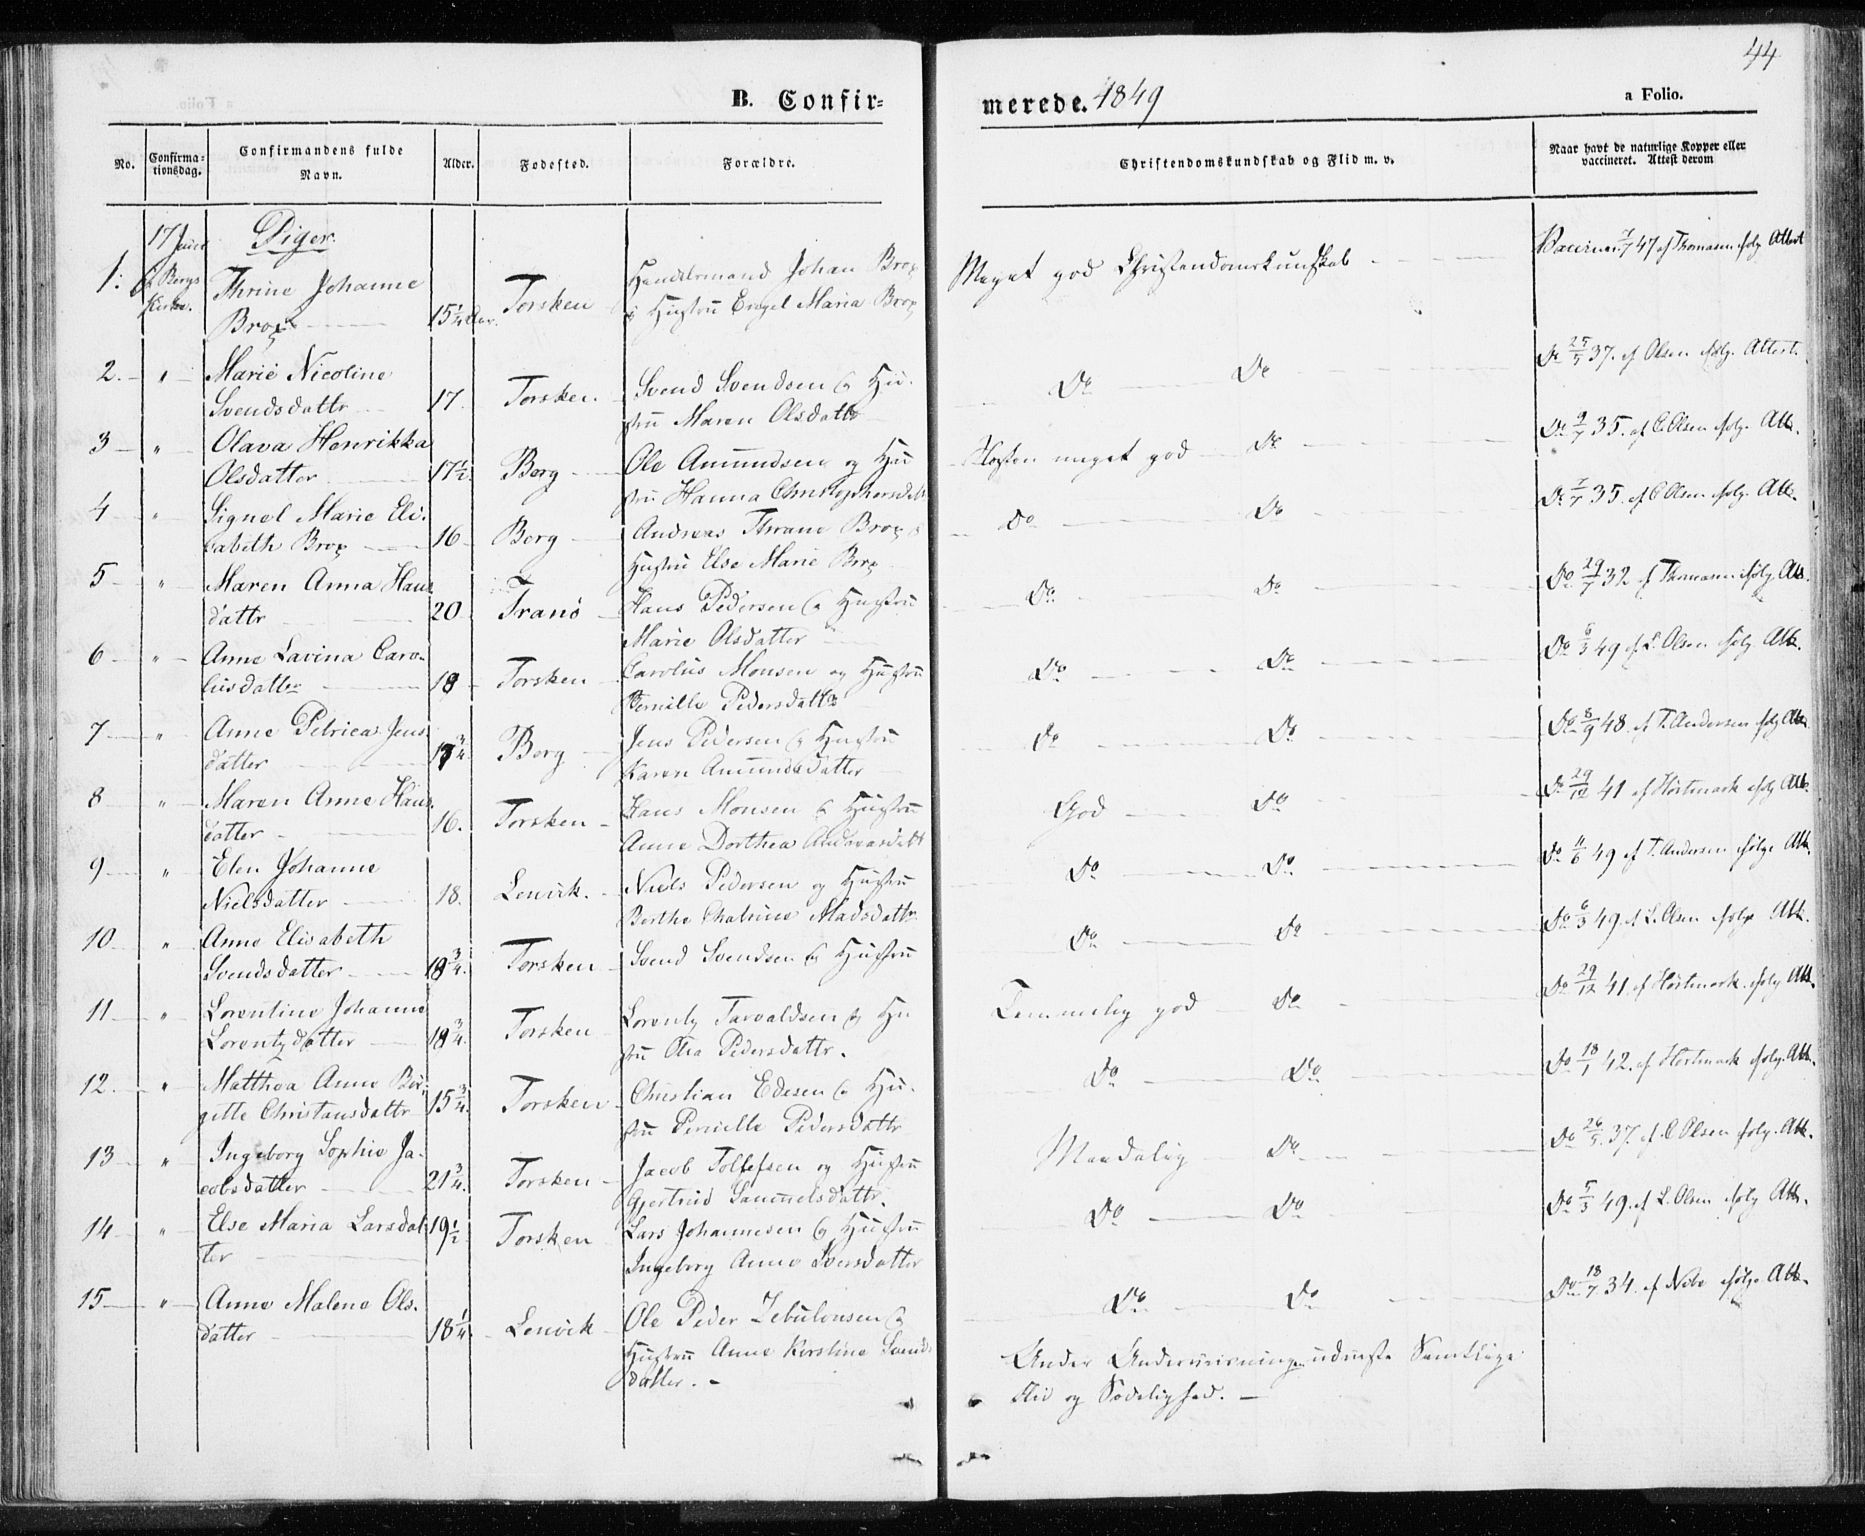 44
B. Confir-
merede. 1849
a Folio.
No.
Confirma-
tionsdag.
Confirmandens fulde
Navn.
Alder.
Fodested.
Forældre.
Christendomskundskab og Flid m. v.
Naar havt de naturlige Kopper eller
vaccineret. Attest derom
17 Juni
Bergs
Kirke.
Piger.
1.
Thrine Johanne
Brox
15 1/4 Aar.
Torsken
Handelsmand Johan Brox
Hustru Engel Maria Brox
Meget god Christendomskundskab
7/7 47 af Thomasen ifølg Attest
2. "
Marie Nicoline
Svendsdattr
17.
Torsken.
Svend Svendsen & Hu-
stru Maren Olsdattr
Do Do
Do 25/5 37. af Olsen ifølg. Attest.
3 "
Olava Henrikka
Olsdatter
17 1/2.
Berg
Ole Amundsen og Hu
stru Hanna Christophersdatt
Næsten meget god Do
Do 9/7 35. af C. Olsen ifølg. Att.
4 "
Signel Marie Eli-
sabeth Brox
16
Berg
Andreas Thrane Brox &
Hustru Else Marie Brox
Do Do
Do 7/7 35. af C Olsen ifølg. Att.
5 "
Maren Anna Hans
dattr
20
Tranö
Hans Pedersen & Hustru
Marie Olsdatter
Do Do
Do 29/7 32 af Thomasen ifølg. Att.
6 "
Anne Lavina Caro-
liusdatter
18
Torsken
Carolus Monsen og Hustru
Pernille Pedersdattr
Do Do
Do 6/3 49 af L. Olsen ifølg. Att.
7 "
Anne Petrica Jens
datter
17 3/4.
Berg
Jens Pedersen & Hustru
Karen Amundsdatter
Do Do
Do 8/9 48. af T. Andersen ifølg Att.
8 "
Maren Anne Hans
datter
16.
Torsken
Hans Monsen & Hustru
Anne Dorthea
God Do
Do 29/12 41 af Hortmark ifølg Att.
9 "
Elen Johanne
Nielsdatter
18.
Lenvik.
Niels Pedersen og Hustru
Berthe Chatrine Madsdattr
Do Do
Do 11/6 49 af T. Andersen ifølge Att.
10 "
Anne Elisabeth
Svendsdatter
18 3/4.
Torsken
Svend Svendsen & Hustru
Do Do
Do 6/3 49. af L. Olsen ifølge Att.
11 "
Lorentine Johanne
Lorentzdatter
18 3/4.
Torsken
Lorentz Tarvaldsen & Hu
stru Olia Pedersdattr.
Temmelig god Do
Do 29/12 41. af Hortmark. ifølg Att.
12. "
Matthea Anne Bir-
gitte Christansdattr
15 3/4.
Torsken
Christian Edisen & Hu-
stru Pernille Pedersdattr
Do Do
Do 18/1 42. af Hortmark ifølg. Att.
13 "
Ingeborg Sophie Ja-
cobsdatter
21 3/4.
Torsken
Jacob Tollefsen og Hustru
Gjertrud Samuelsdattr.
Maadelig Do
Do 26/5. 37. af C Olsen ifølg. Att.
14 "
Else Maria Larsdat-
ter
19 1/2
Torsken
Lars Johannesen & Hustru
Ingeborg Anne Iversdatter
Do Do
Do 5/3 49. af L. Olsen ifølg Att.
15 "
Anne Malene Ols-
datter
18 1/4.
Lenvik
Ole Peder Zebulonsen &
Hustru Anne Kirstine Svends
datter.
Do Do
Do 18/7 34. af Nibe ifølge Att.
Under Underviisningen udviiste Samtlige
Flid og Sædelighed.